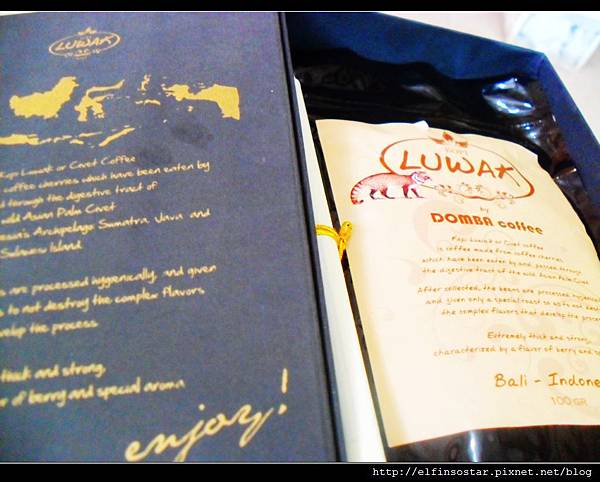 LUWAK
Kopi Luwak or Civet Coffee
coffee cherries which have been eaten by
through the digestive tract of
Asian Palm Civet
Archipelago Sumatra, Java and
Island
are processed hygienically, and given
to not destroy the complex flavors
the process.
thick and strong,
of berry and special aroma
enjoy!
KOPI
LUWAK
by
DOMBA coffee
Kopi Luwak or Civet coffee
is coffee made from coffee cherries
which have been eaten by and passed through
the digestive tract of the wild Asian Palm Civet
After collected, the beans are processed
and given only a special roast so as to not
the complex flavors that develop the process
Extremely thick and strong,
characterized by a flavor of berry and
Bali - Indone
100 GR
http://elfinsostar.pixnet.net/blog